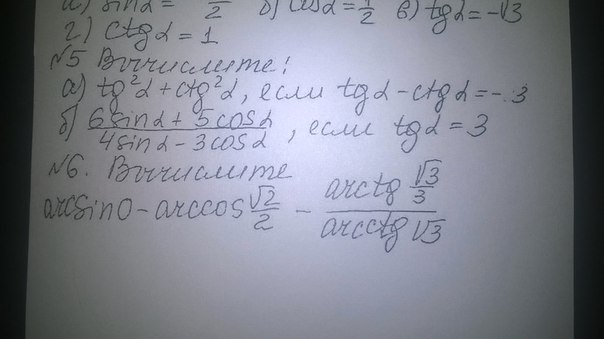 а) sinα = /2 б) cosα = 1/2 в) tgα = -√3
г) ctgα = 1
№5 Вычислите:
а) tg²α + ctg²α, если tgα - ctgα = -3
б) (6sinα + 5cosα)/(4sinα - 3cosα), если tgα = 3
№6. Вычислите
arcsin0 - arccos √2/2 - (arctg √3/3)/(arcctg √3)